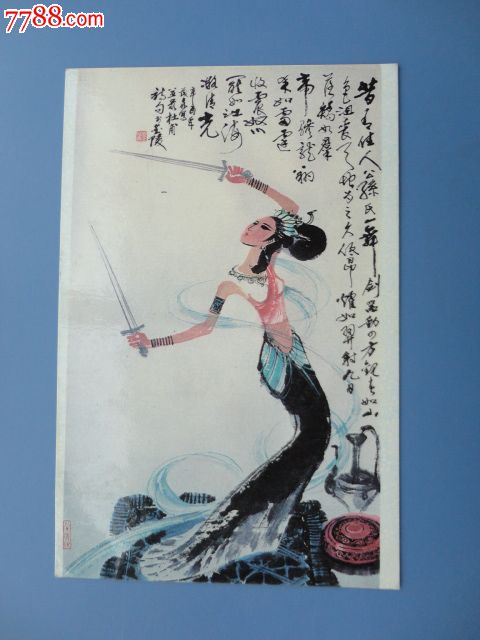 7788.com
昔有佳人公孫氏一舞劍器動四方觀者如山
色沮喪天地為之久低昂燿如羿射九日
落矯如羣
帝驂龍翔
來如雷霆
收震怒
罷如江海
凝清光
辛酉年
並錄杜甫
詩句於金陵